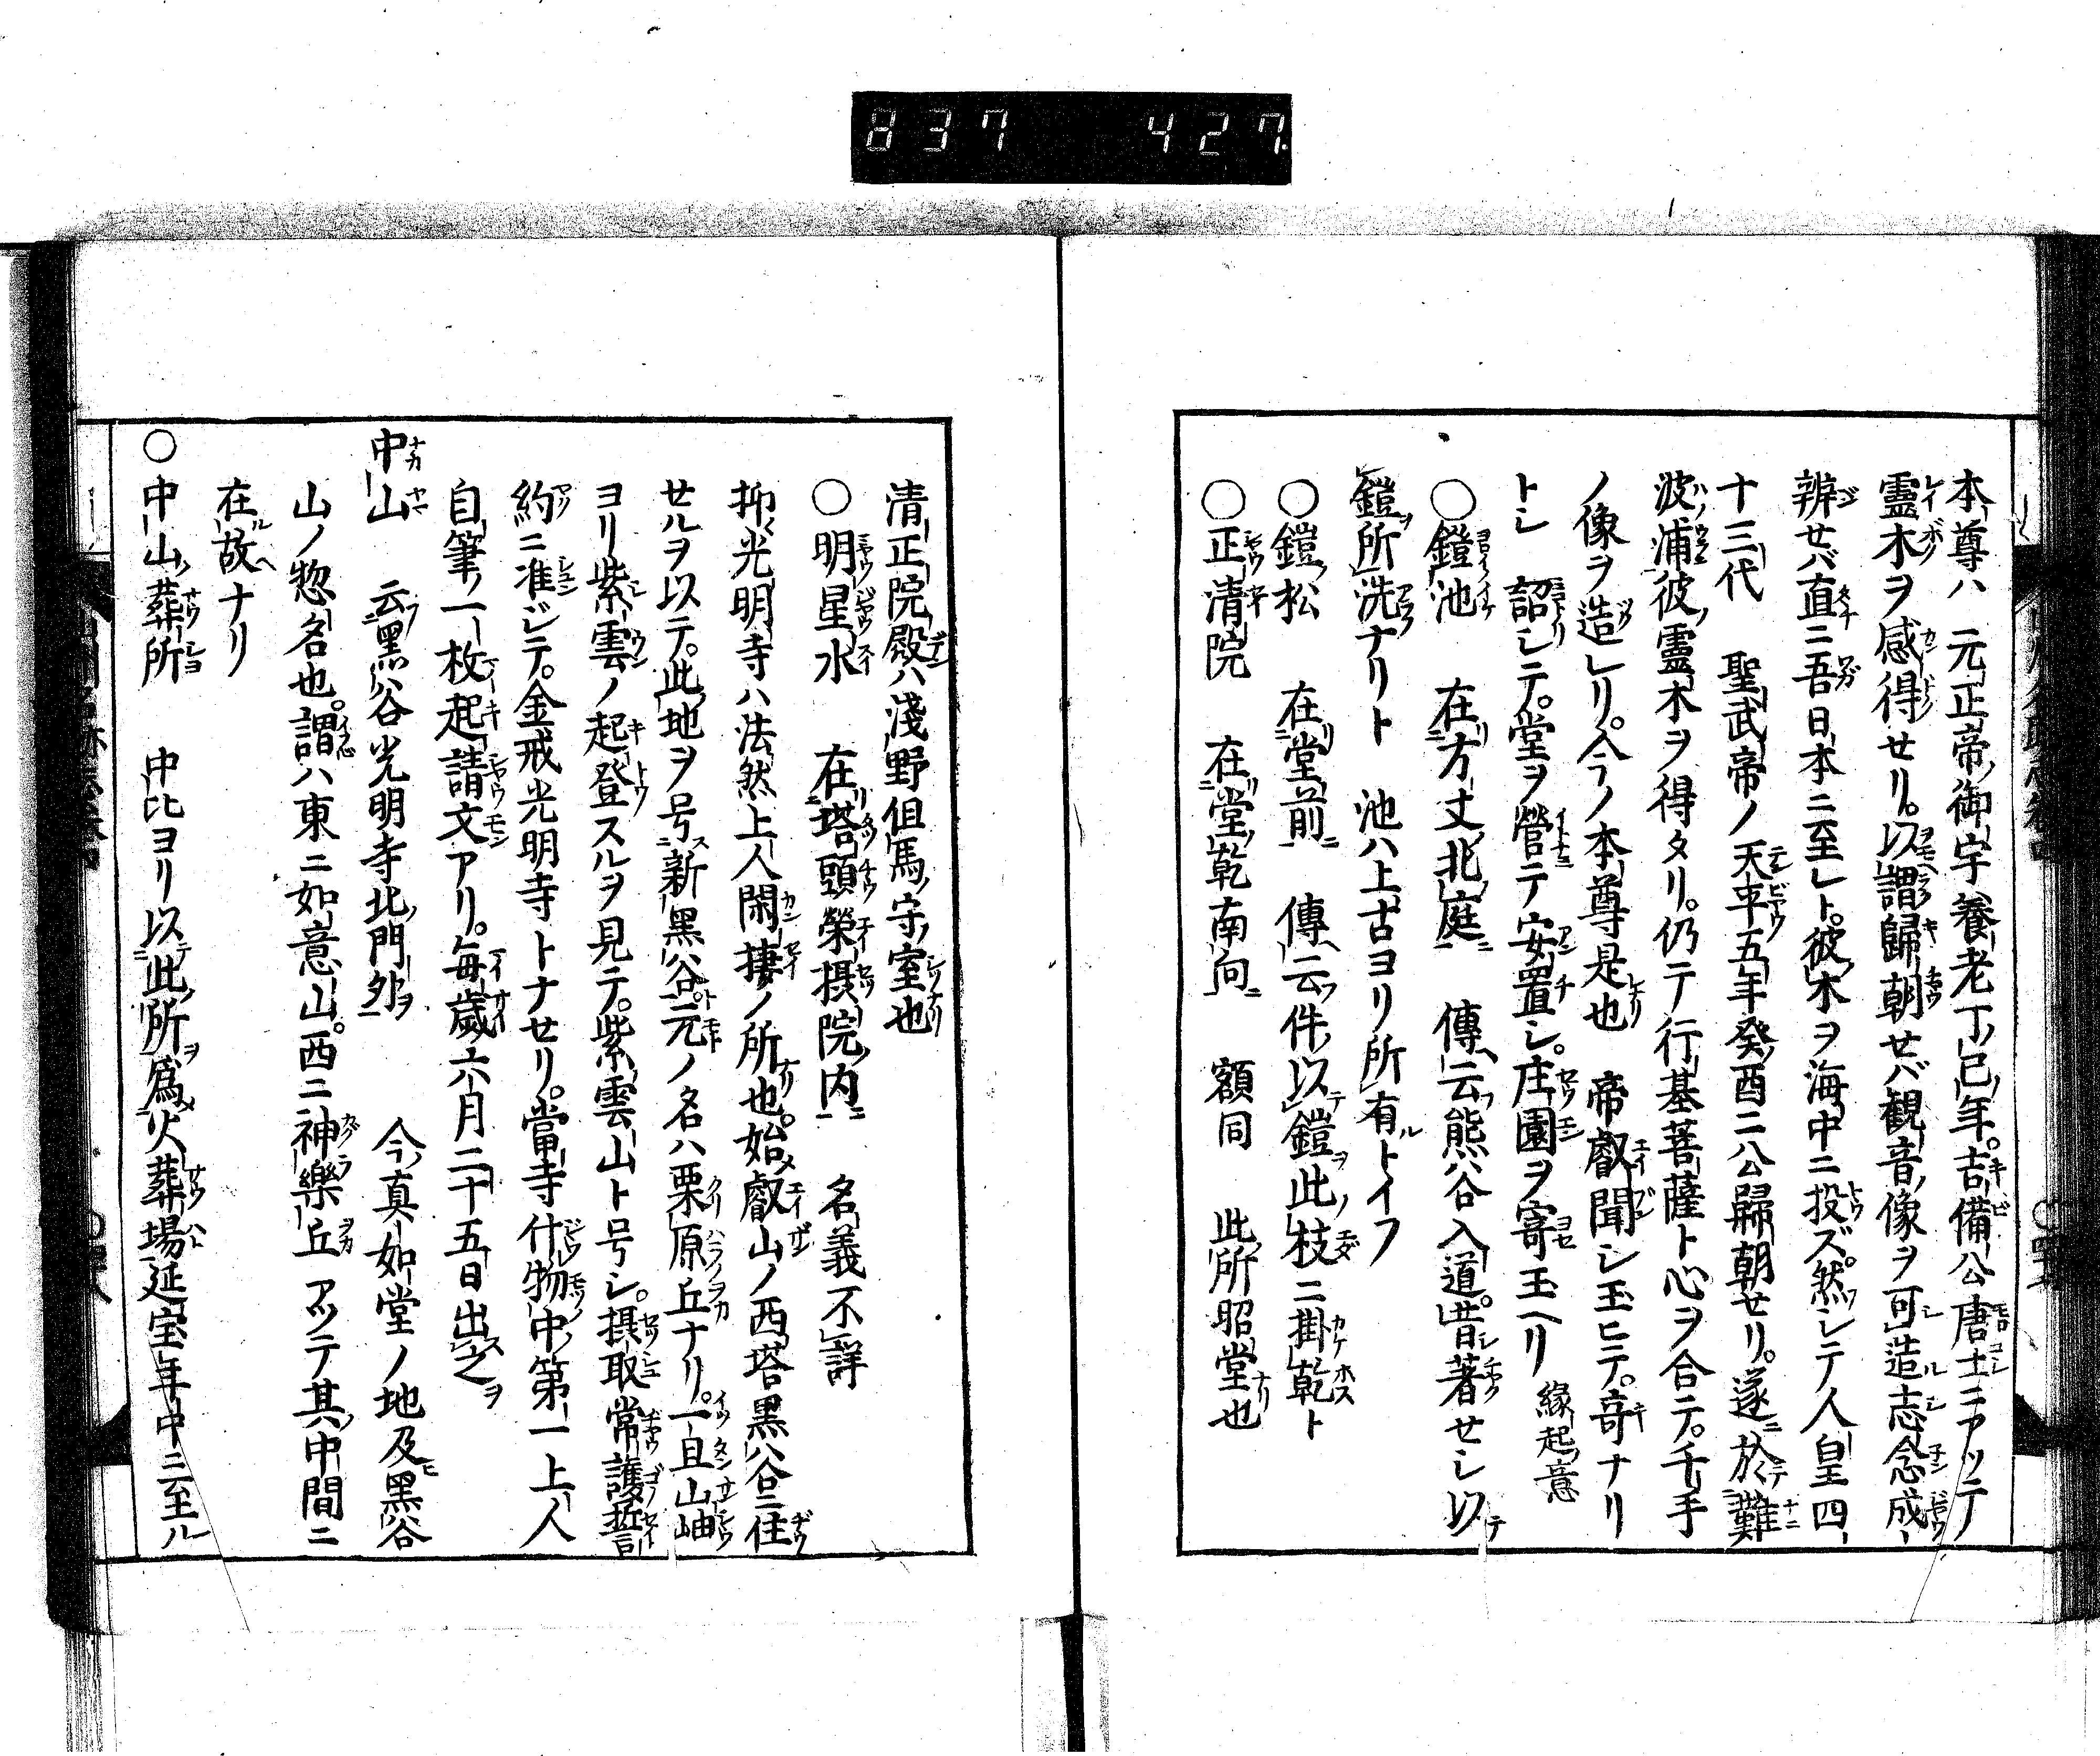 837 427
本尊ハ 元正帝御宇養老丁巳年。吉備公唐土ニアッテ
霊木ヲ感得セリ。以謂歸朝セバ観音像ヲ可造志念成
辨セバ直ニ吾日本ニ至レト。彼木ヲ海中ニ投ズ。然シテ人皇四
十三代 聖武帝ノ天平五年癸酉ニ公歸朝セリ。遂於難
波浦彼霊木ヲ得タリ。仍テ行基菩薩ト心ヲ合テ。千手
ノ像ヲ造レリ。今ノ本尊是也 帝叡聞シ玉ヒテ。奇ナリ
トシ 詔シテ。堂ヲ營テ安置シ。庄園ヲ寄玉ヘリ 縁起意
○鐙池 在方丈北庭 傳云熊谷入道。昔著セシ以
鎧所洗ナリト 池ハ上古ヨリ所有トイフ
○鎧松 在堂前 傳云件以鎧此枝ニ掛乾ト
○正清院 在堂乾南向 額同 此所昭堂也
清正院殿ハ淺野但馬守室也
○明星水 在塔頭榮摂院内 名義不詳
抑光明寺ハ法然上人閑棲ノ所也。始叡山ノ西塔黒谷ニ住
セルヲ以テ。此地ヲ号新黒谷元ノ名ハ栗原丘ナリ。一旦山岫
ヨリ紫雲ノ起登スルヲ見テ。紫雲山ト号シ。摂取常護誓
約ニ准ジテ。金戒光明寺トナセリ。當寺什物中第一上人
自筆ノ一枚起請文アリ。毎歳六月二十五日出之
中山 云黒谷光明寺北門外 今真如堂ノ地及黒谷
山ノ惣名也。謂ハ東ニ如意山。西ニ神樂丘アッテ其中間ニ
在故ナリ
○中山葬所 中比ヨリ以此所為火葬場延宝年中ニ至ル